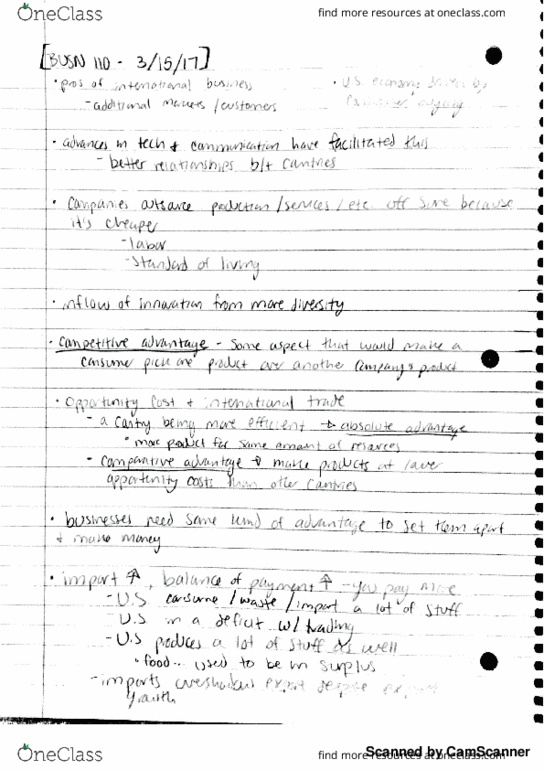 OneClass
find more resources at oneclass.com
[BUSN 110 - 3/15/17]
• pros of international business
- additional markets/customers
• U.S. economy driven by
consumer
• advances in tech + communication have facilitated this
- better relationships b/t countries
• Companies outsource production/services/etc. off shore because
it's cheaper
- labor
- standard of living
• inflow of innovation from more diversity
• competitive advantage - some aspect that would make a
consumer pick one product over another company's product
• opportunity cost + international trade
- a country being more efficient → absolute advantage
• more product for same amount of resources
- comparative advantage → make products at lower
opportunity costs than other countries
• businesses need some kind of advantage to set them apart
+ make money
• import ↑, balance of payment ↑ - you pay more
- U.S consume/waste/import a lot of stuff
- U.S in a deficit w/ trading
- U.S produces a lot of stuff as well
• food... used to be in surplus
- imports overshadow export despite export
growth
OneClass
find more resources at oneclass.com
Scanned by CamScanner